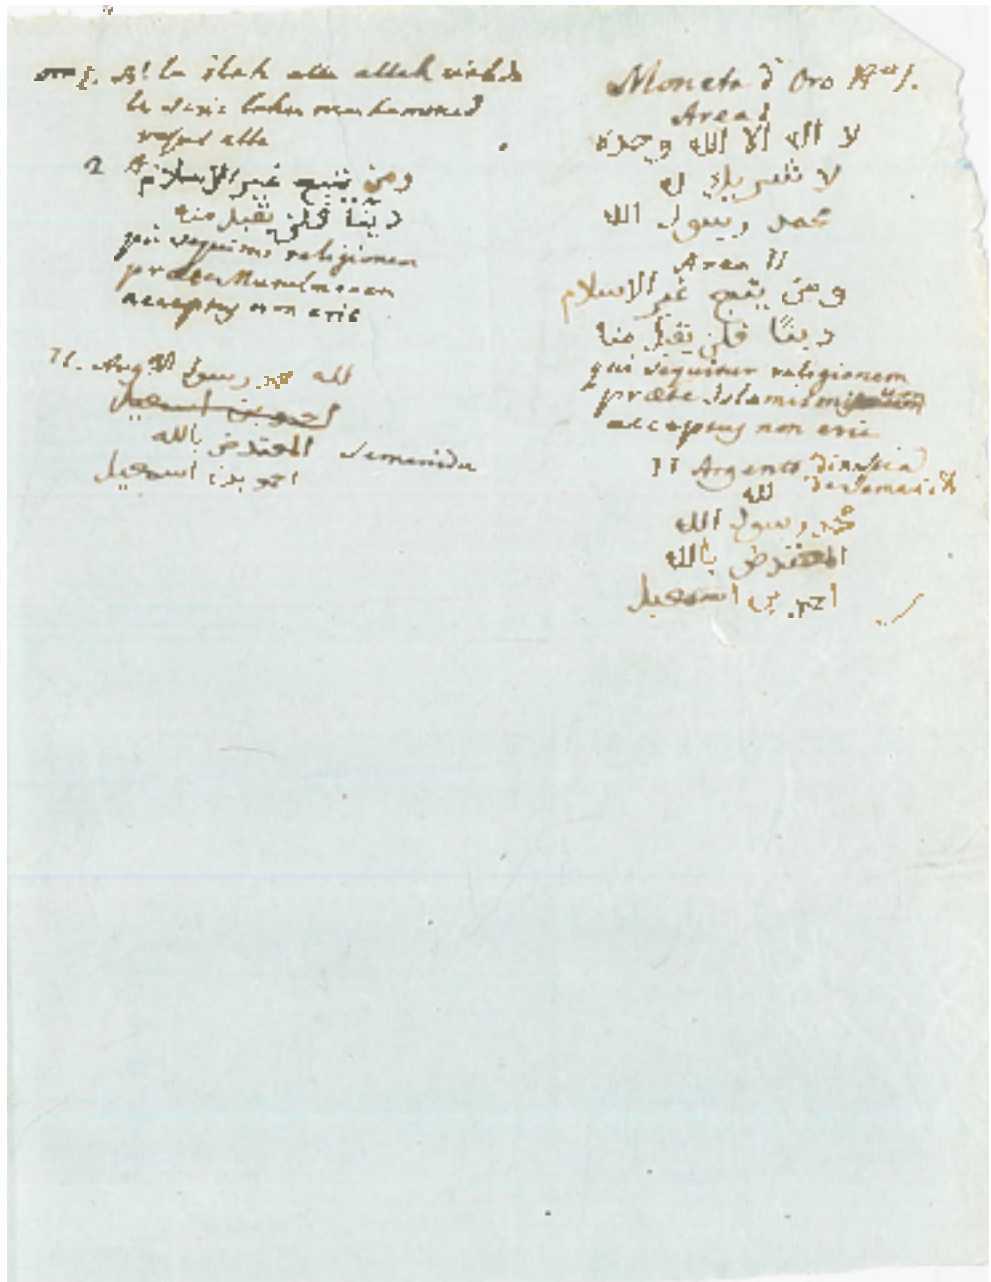 1. A! la ilah alla allah
mouhammed
rasul alla
2 A ومن يتبع غير الاسلام
دينًا فلن تقبل منه
qui sequimur religionem
præter Musulmanam
acceptus non erit
II. Arg لله محمد رسول الله
احمد بن اسمعيل
المعتضد بالله Semanida
احمد بن اسمعيل
Moneta d'Oro N. I.
Area I
لا اله الا الله وحده
لا شريك له
محمد رسول الله
Area II
ومن يتبع غير الاسلام
دينًا فلن يقبل منه
qui sequimur religionem
præter Islamismi
acceptus non erit
II Argento dinastia
de Semanidi
لله
محمد رسول الله
المعتضد بالله
احمد بن اسمعيل